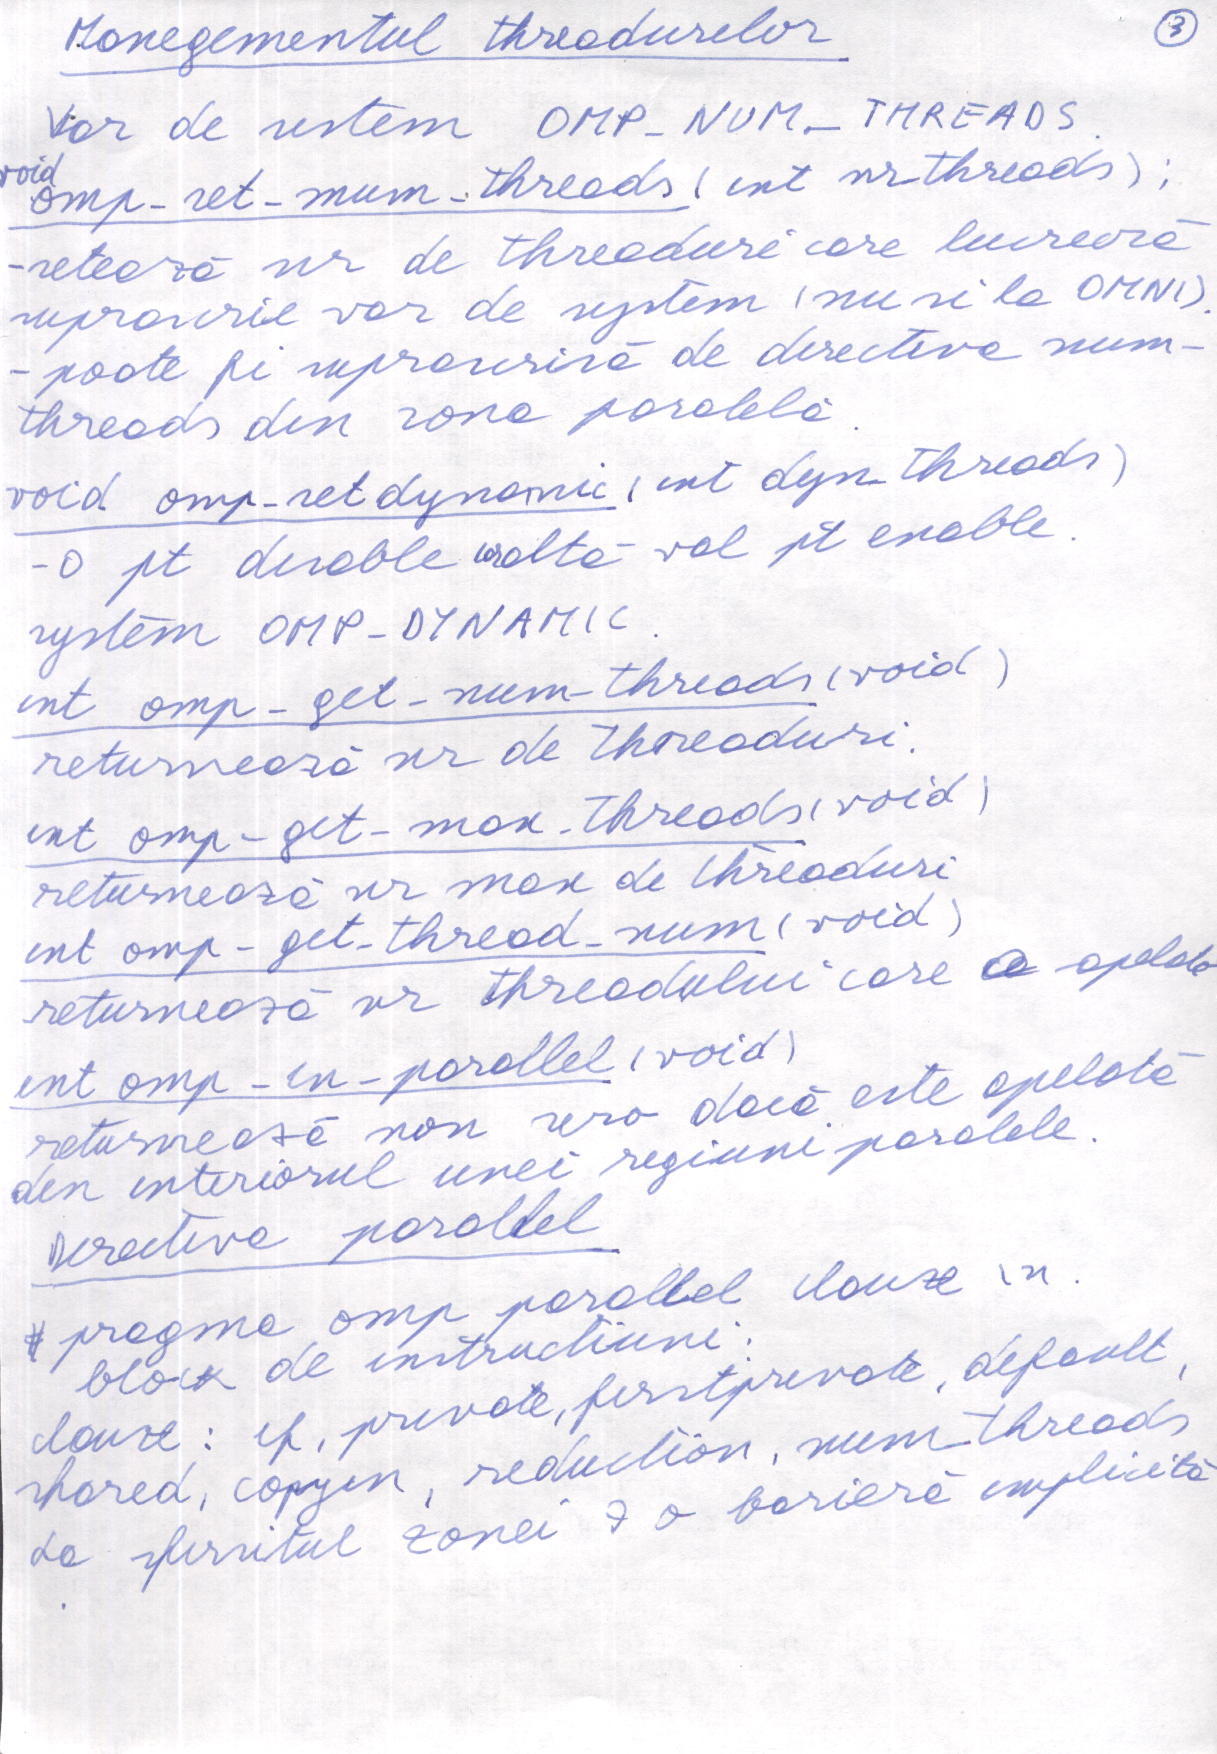 Managementul threadurilor
3
Var de sistem OMP_NUM_THREADS.
void
omp_set_num_threads(int nr_threads);
-setează nr de threaduri care lucrează
suprascrie var de system (nu si la OMNI).
- poate fi suprascrisă de directiva num_
threads din zona paralelă.
void omp_set dynamic(int dyn_threads)
-0 pt disable altă val pt enable.
system OMP_DYNAMIC.
int omp_get_num_threads(void)
returnează nr de threaduri.
int omp_get_max_threads(void)
returnează nr max de threaduri
int omp_get_thread_num(void)
returnează nr threadului care a apelat
int omp_in_parallel(void)
returnează non zero dacă este apelată
din interiorul unei regiuni paralele.
Directiva parallel
# pragma omp parallel clauze \n.
block de instructiuni.
clauze: if, private, firstprivate, default,
shared, copyin, reduction, num_threads
La sfirsitul zonei ∃ o barieră implicită